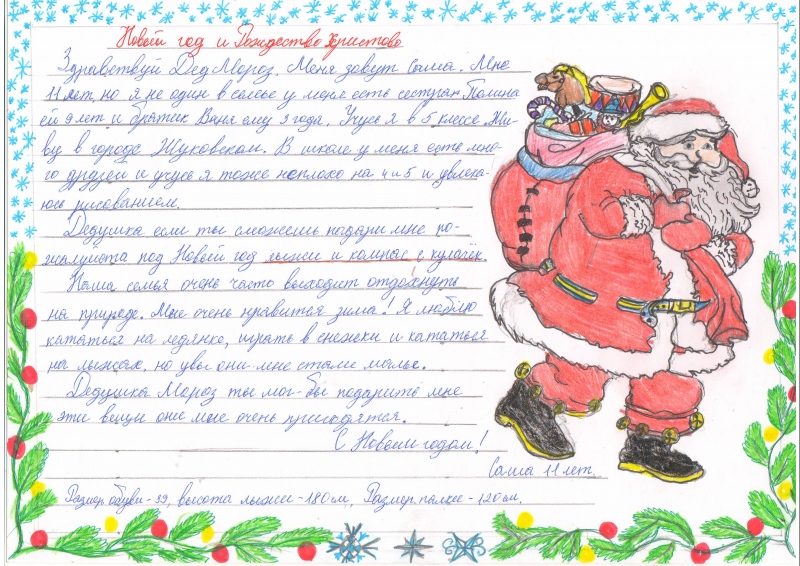 Новый год и Рождество Христово
Здравствуй Дед Мороз. Меня зовут Саша. Мне
11 лет, но я не один в семье у меня есть сестра Полина
ей 9 лет и братик Ваня ему 3 года. Учусь я в 5 классе. Жи-
ву в городе Жуковском. В школе у меня есть мно-
го друзей и учусь я тоже неплохо на 4 и 5 и увлека-
юсь рисованием.
Дедушка если ты сможешь подари мне по-
жалуйста под Новый год лыжи и компас с кулачёк.
Наша семья очень часто выходит отдохнуть
на природе. Мне очень нравится зима! Я люблю
кататься на ледянке, играть в снежки и кататься
на лыжах, но увы они мне стали малы.
Дедушка Мороз ты мог-бы подарить мне
эти вещи они мне очень пригодятся.
С Новым годом!
Саша 11 лет.
Размер обуви - 39, высота лыжи - 180 см, Размер палки - 120 см.